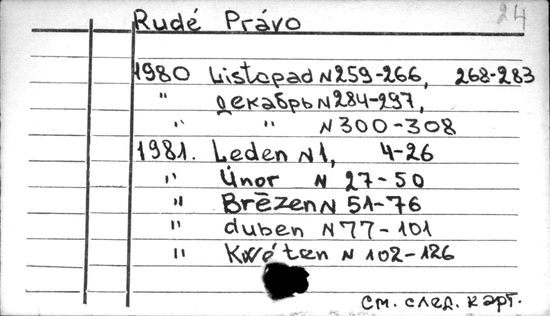 24
Rudé Právo
1980 Listopad N259-266, 268-283
" декабрь N284-297,
" " N300-308
1981. Leden N1, 4-26
" Únor N 27-50
" Brězen N 51-76
" duben N77-101
" Kwéten N 102-126
см. след. карт.